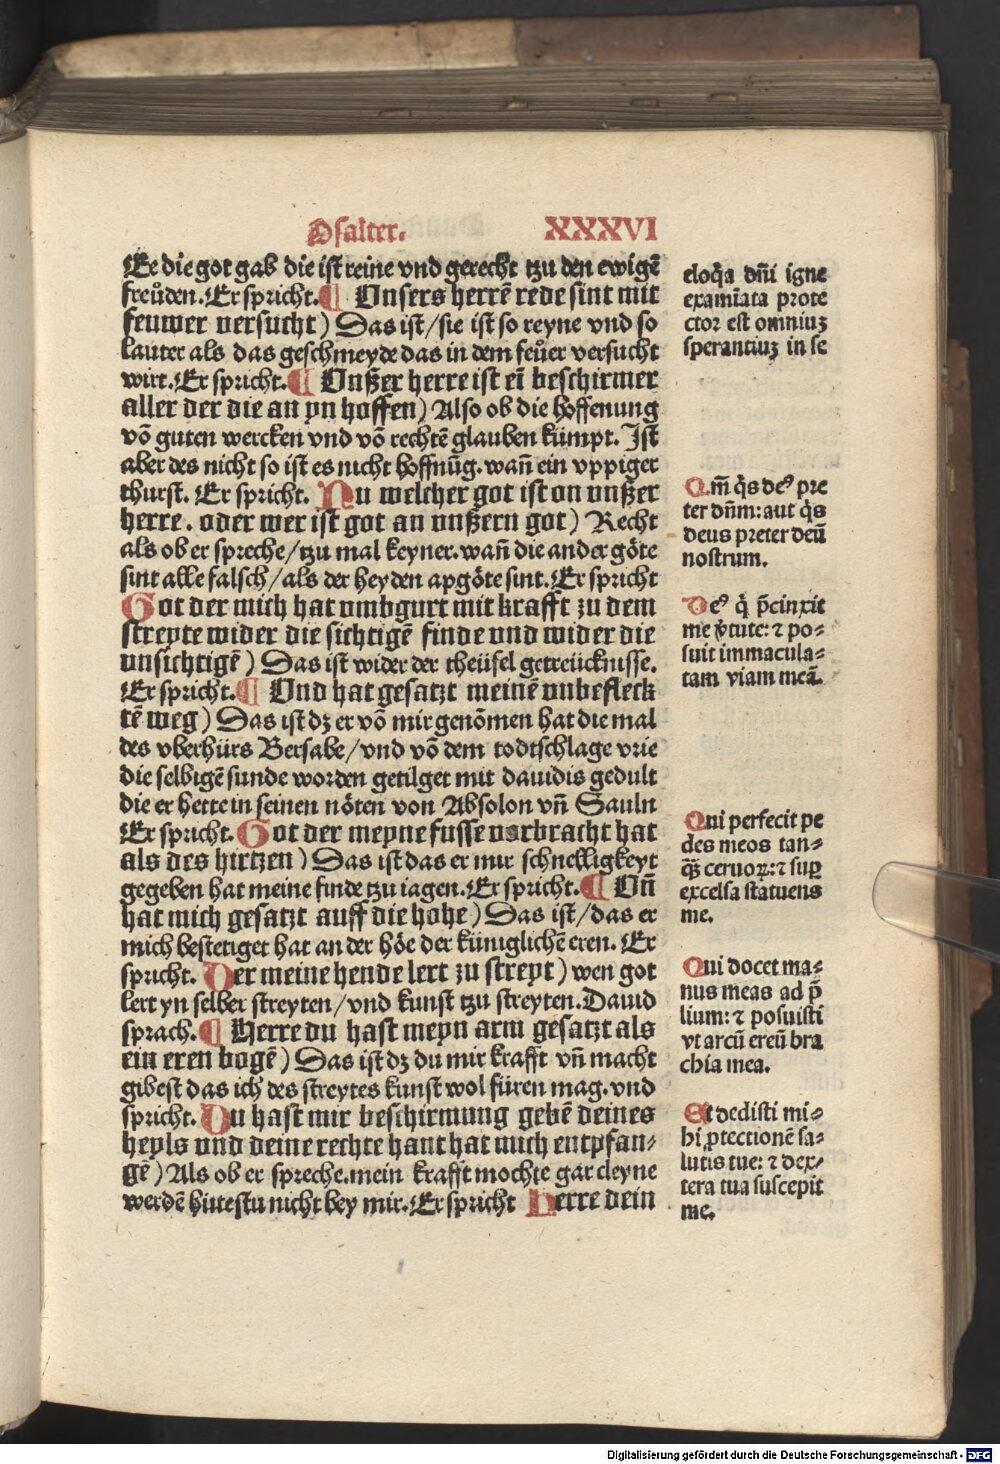 Psalter. XXXVI
Ee die got gab die ist reine vnd gerecht tzu den ewigē
freuͦden. Er spricht. ¶ Unsers herrē rede sint mit
feuwer versucht) Das ist/sie ist so reyne vnd so
lauter als das geschmeyde das in dem feuͦer versucht
wirt. Er spricht. ¶ Unßer herre ist eī beschirmer
aller der die an yn hoffen) Also ob die hoffenung
vō guten wercken vnd vō rechtē glauben kümpt. Ist
aber des nicht so ist es nicht hoffnūg. wañ ein vppiger
thurst. Er spricht. Nu welcher got ist on vnßer
herre. oder wer ist got an vnßern got) Recht
als ob er spreche/tzu mal keyner. wañ die ander göte
sint alle falsch/als der heyden apgöte sint. Er spricht
Got der mich hat vmbgurt mit krafft zu dem
streyte wider die sichtigē finde vnd wider die
vnsichtigē) Das ist wider der theüfel getreücknisse.
Er spricht. ¶ Vnd hat gesatzt meinē vnbefleck
tē weg) Das ist dz er vō mir genōmen hat die mal
des vberhürs Bersabe/vnd vō dem todtschlage vrie
die selbigē sunde worden getilget mit dauidis gedult
die er hette in seinen nöten von Absolon vñ Sauln
Er spricht. Got der meyne fusse vorbracht hat
als des hirtzen) Das ist das er mir schnelligkeyt
gegeben hat meine finde tzu iagen. Er spricht. ¶ Vñ
hat mich gesatzt auff die hohe) Das ist/das er
mich bestetiget hat an der höe der küniglichē eren. Er
spricht. Der meine hende lert zu streyt) wen got
lert yn selber streyten/vnd kunst tzu streyten. Dauid
sprach. ¶ Herre du hast meyn arm gesatzt als
ein eren bogē) Das ist dz du mir krafft vñ macht
gibest das ich des streytes kunst wol füren mag. vnd
spricht. Du hast mir beschirmung gebē deines
heyls vnd deine rechte hant hat mich entpfan⸗
gē) Als ob er spreche. mein krafft mochte gar cleyne
werdē hittestu nicht bey mir. Er spricht Herre dein
eloq̄a dn̄i igne
examīata prote
ctor est omniuꝫ
sperantiuꝫ in se
Qm̄ q̄s deꝰ pre
ter dn̄m: aut q̄s
deus preter deū
nostrum.
Deꝰ q̄ p̄cinxit
me v̓tute: ⁊ po⸗
suit immacula⸗
tam viam meā.
Qui perfecit pe
des meos tan⸗
qꝫ̄ ceruoꝝ: ⁊ suꝑ
excelsa statuens
me.
Qui docet ma⸗
nus meas ad p̄
lium: ⁊ posuisti
vt arcū ereū bra
chia mea.
Et dedisti mi⸗
hi ꝓtectionē sa⸗
lutis tue: ⁊ dex⸗
tera tua suscepit
me.
Digitalisierung gefördert durch die Deutsche Forschungsgemeinschaft - DFG